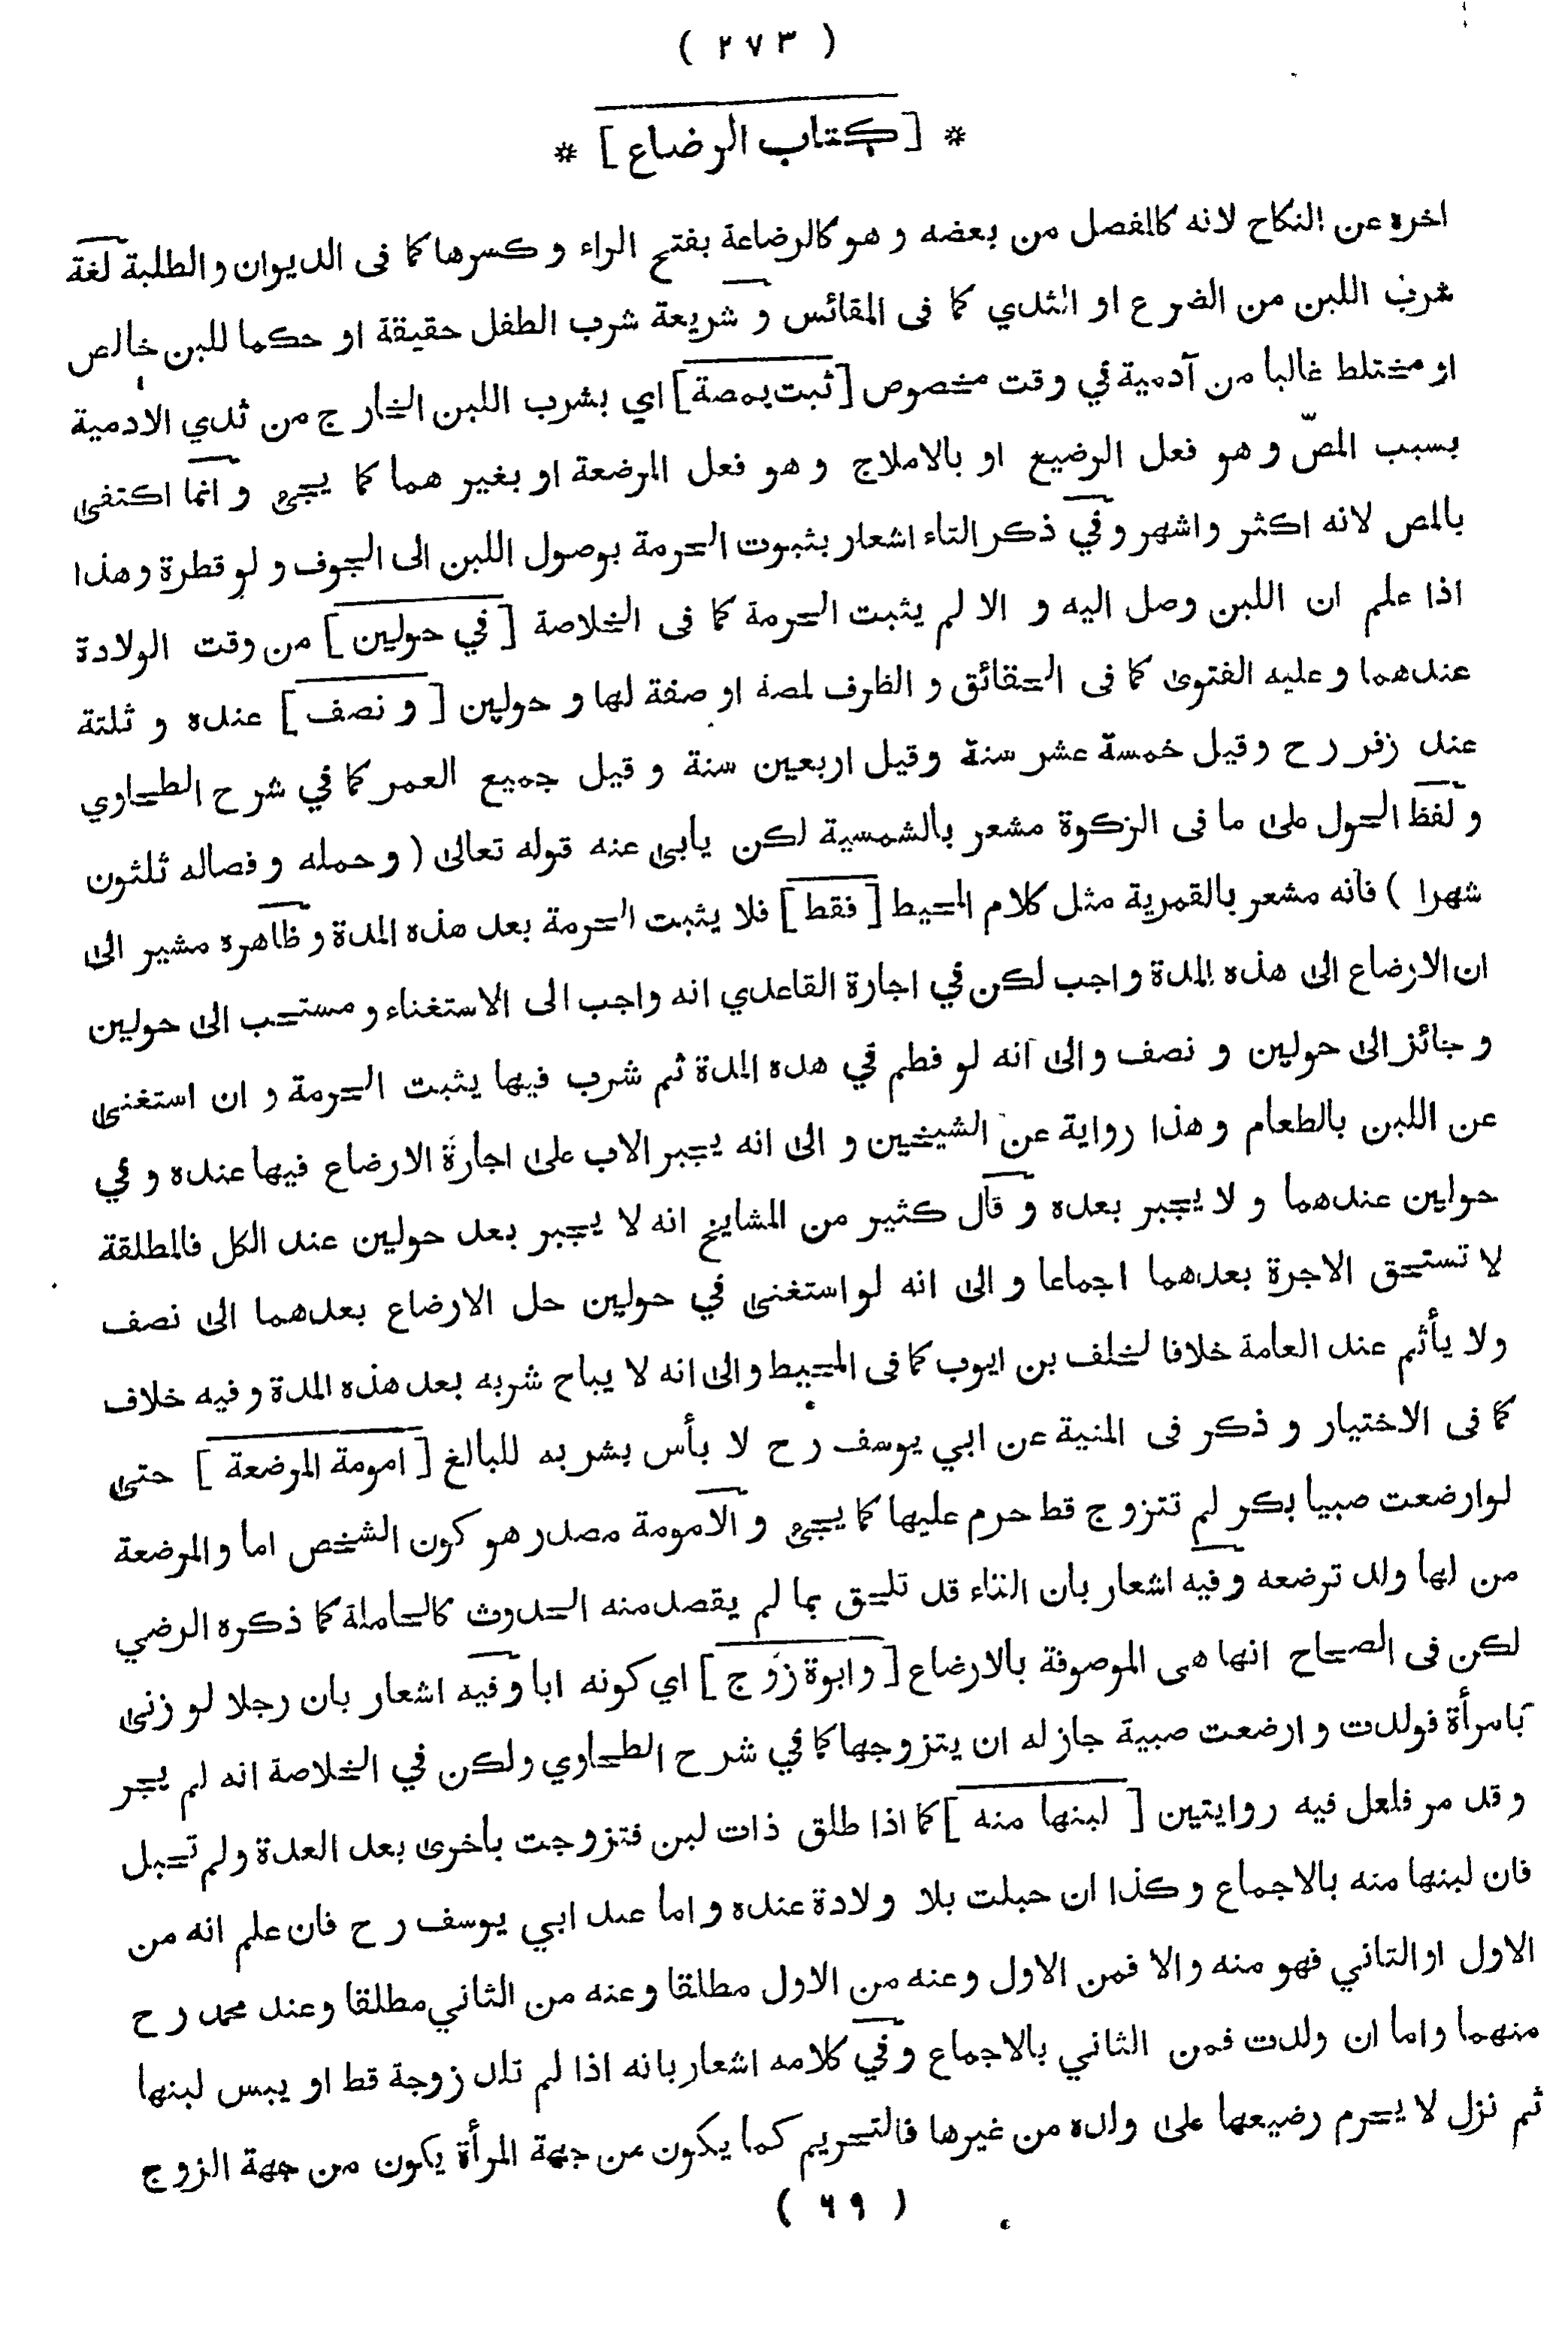 ( ٢٧٣ )
* [ كتاب الرضاع ] *
اخره عن النكاح لانه كالفصل من بعضه و هو كالرضاعة بفتح الراء و كسرها كما فى الديوان و الطلبة لغة
شرب اللبن من الضرع او الثدي كما فى المقائس و شريعة شرب الطفل حقيقة او حكما للبن خالص
او مختلط غالبا من آدمية في وقت مخصوص [ ثبت بمصة ] اي بشرب اللبن الخارج من ثدي الادمية
بسبب المصّ و هو فعل الرضيع او بالاملاج و هو فعل المرضعة او بغير هما كما يجىء و انما اكتفى
بالمص لانه اكثر و اشهر و في ذكر التاء اشعار بثبوت الحرمة بوصول اللبن الى الجوف و لو قطرة و هذا
اذا علم ان اللبن وصل اليه و الا لم يثبت الحرمة كما فى الخلاصة [ في حولين ] من وقت الولادة
عندهما و عليه الفتوى كما فى الحقائق و الظرف لمصة او صفة لها و حولين [ و نصف ] عنده و ثلثة
عند زفر رح وقيل خمسة عشر سنة وقيل اربعين سنة و قيل جميع العمر كما في شرح الطحاوي
و لفظ الحول على ما فى الزكوة مشعر بالشمسية لكن يأبى عنه قوله تعالى ( و حمله و فصاله ثلثون
شهرا ) فانه مشعر بالقمرية مثل كلام المحيط [ فقط ] فلا يثبت الحرمة بعد هذه المدة و ظاهره مشير الى
ان الارضاع الى هذه المدة واجب لكن في اجارة القاعدي انه واجب الى الاستغناء و مستحب الى حولين
و جائز الى حولين و نصف و الى انه لو فطم في هده المدة ثم شرب فيها يثبت الحرمة و ان استغنى
عن اللبن بالطعام و هذا رواية عن الشيخين و الى انه يجبر الاب على اجارة الارضاع فيها عنده و في
حولين عندهما و لا يجبر بعده و قال كثير من المشايخ انه لا يجبر بعد حولين عند الكل فالمطلقة
لا تستحق الاجرة بعدهما اجماعا و الى انه لو استغنى في حولين حل الارضاع بعدهما الى نصف
ولا يأثم عند العامة خلافا لخلف بن ايوب كما فى المحيط و الى انه لا يباح شربه بعد هذه المدة و فيه خلاف
كما فى الاختيار و ذكر فى المنية عن ابي يوسف رح لا بأس بشربه للبالغ [ امومة المرضعة ] حتى
لو ارضعت صبيا بكر لم تتزوج قط حرم عليها كما يجىء و الامومة مصدر هو كون الشخص اما و المرضعة
من لها ولد ترضعه و فيه اشعار بان التاء قد تلحق بما لم يقصد منه الحدوث كالحاملة كما ذكره الرضي
لكن فى الصحاح انها هى الموصوفة بالارضاع [ و ابوة زوج ] اي كونه ابا و فيه اشعار بان رجلا لو زنى
بامرأة فولدت و ارضعت صبية جاز له ان يتزوجها كما في شرح الطحاوي ولكن في الخلاصة انه لم يجر
و قد مر فلعل فيه روايتين [ لبنها منه ] كما اذا طلق ذات لبن فتزوجت بأخرى بعد العدة ولم تحبل
فان لبنها منه بالاجماع و كذا ان حبلت بلا ولادة عنده و اما عند ابي يوسف رح فان علم انه من
الاول او الثاني فهو منه والا فمن الاول وعنه من الاول مطلقا وعنه من الثاني مطلقا وعند محمد رح
منهما و اما ان ولدت فمن الثاني بالاجماع و في كلامه اشعار بانه اذا لم تلد زوجة قط او يبس لبنها
ثم نزل لا يحرم رضيعها على ولده من غيرها فالتحريم كما يكون من جهة المرأة يكون من جهة الزوج
( ٦٩ )